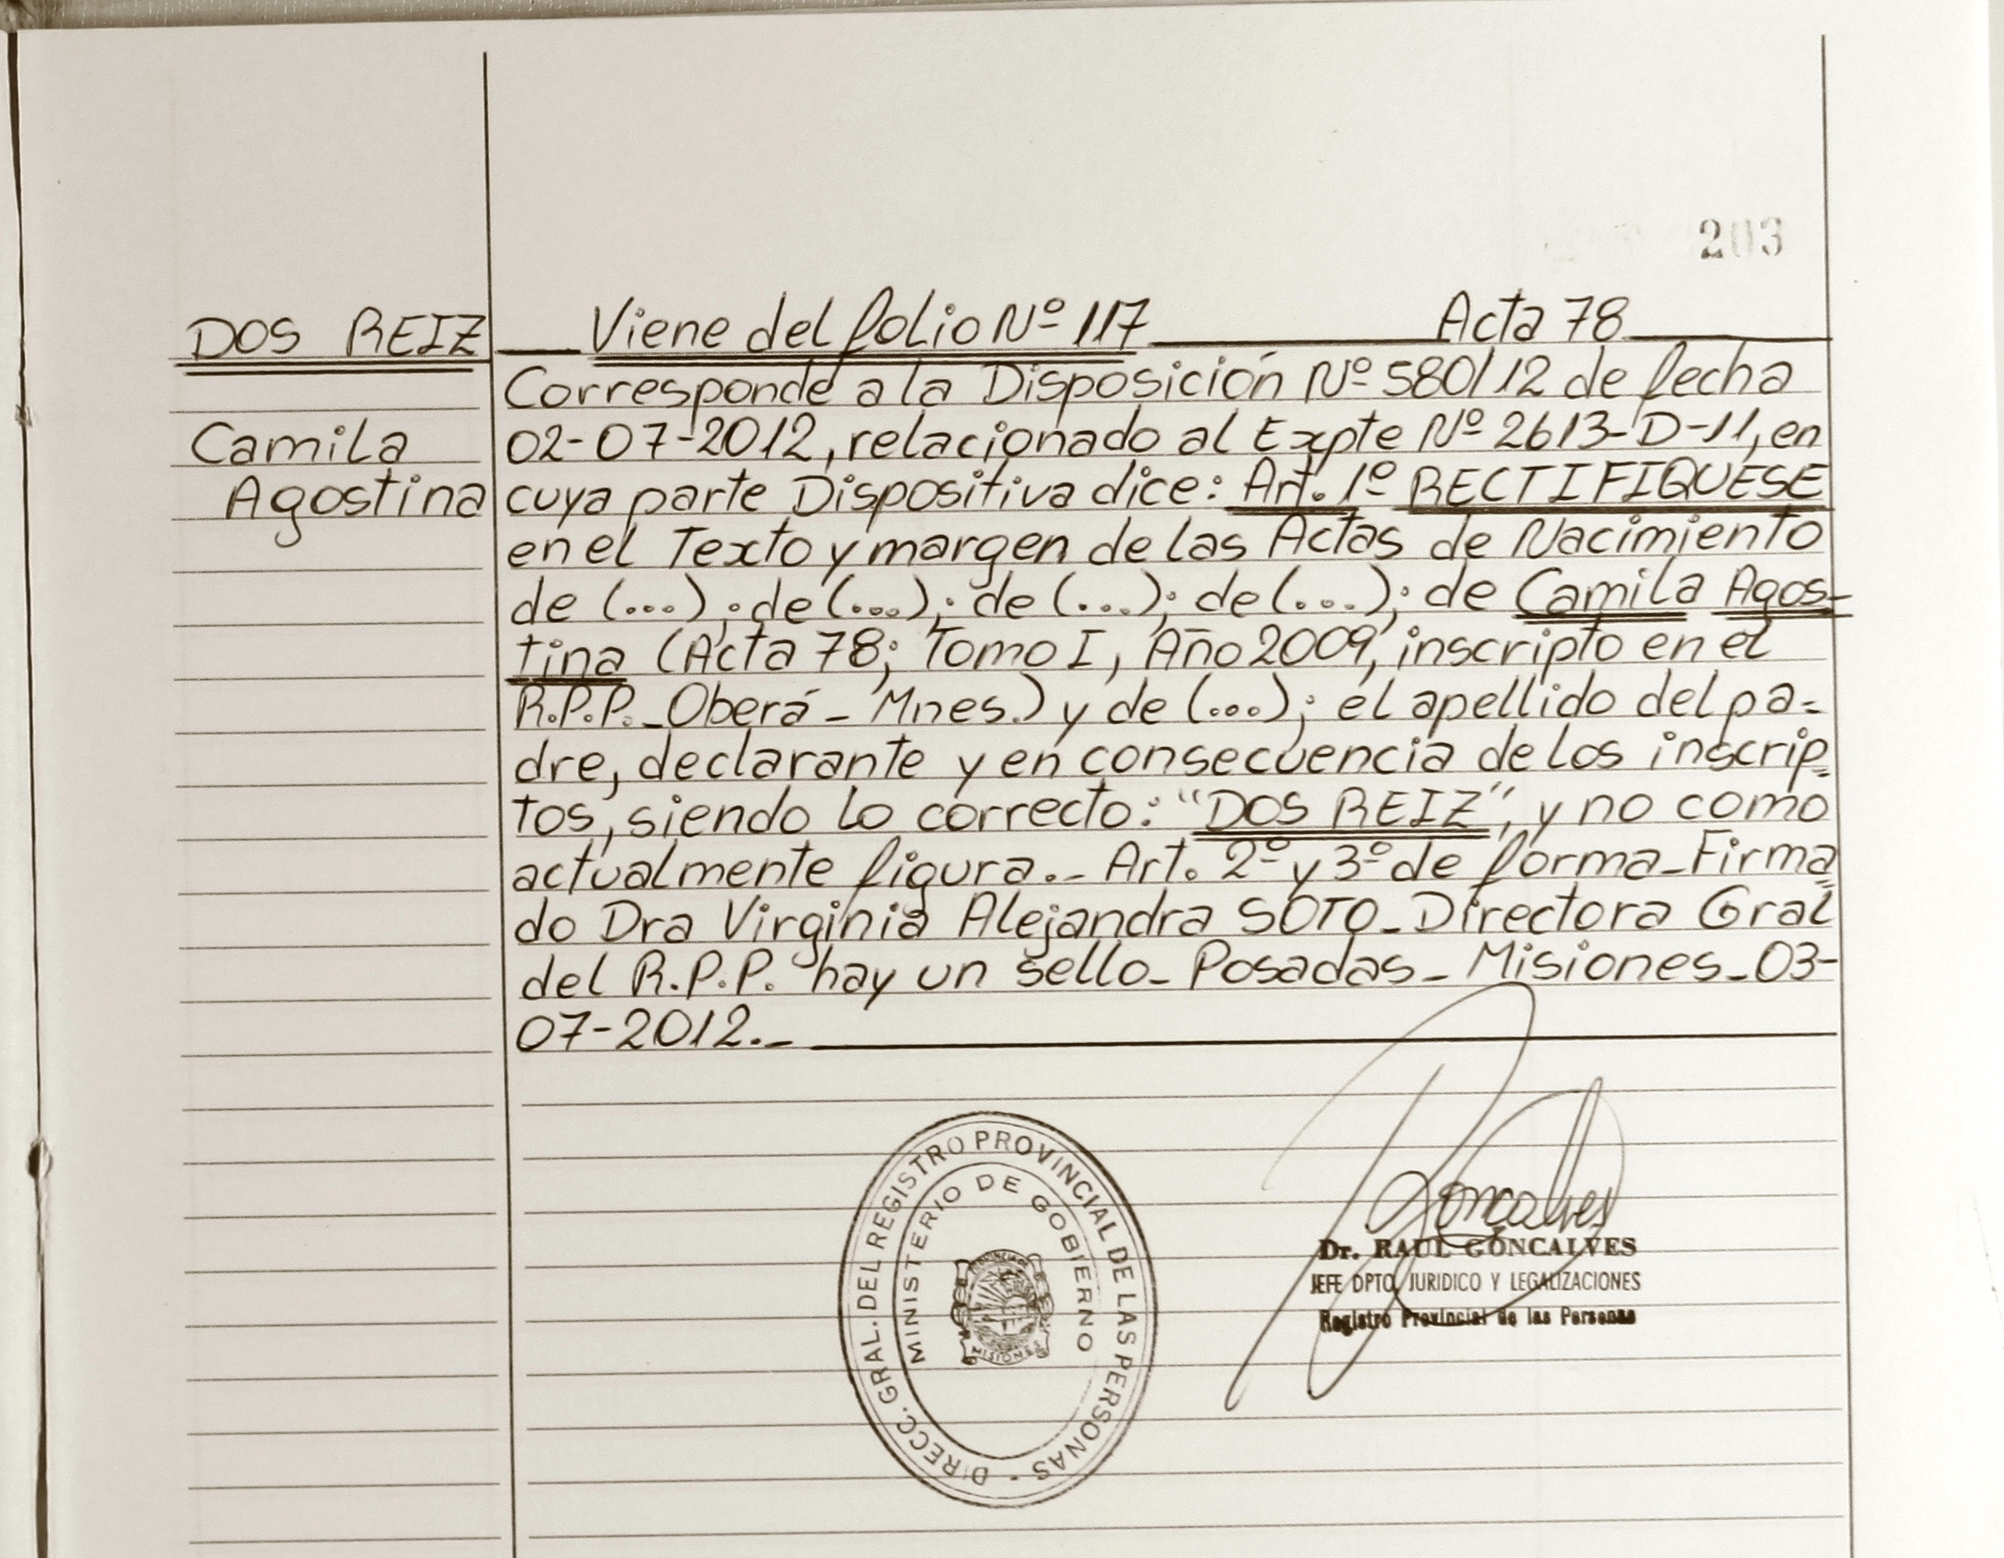 203
DOS REIZ
Camila
Agostina
Viene del folio Nº 117 Acta 78
Corresponde a la Disposición Nº 580/12 de fecha
02-07-2012, relacionado al Expte Nº 2613-D-11, en
cuya parte Dispositiva dice: Art. 1º RECTIFIQUESE
en el Texto y margen de las Actas de Nacimiento
de (...); de (...); de (...); de (...); de Camila Agos-
tina (Acta 78; Tomo I, Año 2009, inscripto en el
R.P.P. - Oberá - Mnes.) y de (...); el apellido del pa=
dre, declarante y en consecuencia de los inscrip=
tos, siendo lo correcto: "DOS REIZ", y no como
actualmente figura.- Art. 2º y 3º de forma - Firma=
do Dra Virginia Alejandra SOTO - Directora Gral
del R.P.P. hay un sello - Posadas - Misiones - 03-
07-2012.-
DIRECC. GRAL. DEL REGISTRO PROVINCIAL DE LAS PERSONAS -
MINISTERIO DE GOBIERNO
PROVINCIA DE
MISIONES
Goncalves
Dr. RAUL GONCALVES
JEFE DPTO. JURIDICO Y LEGALIZACIONES
Registro Provincial de las Personas